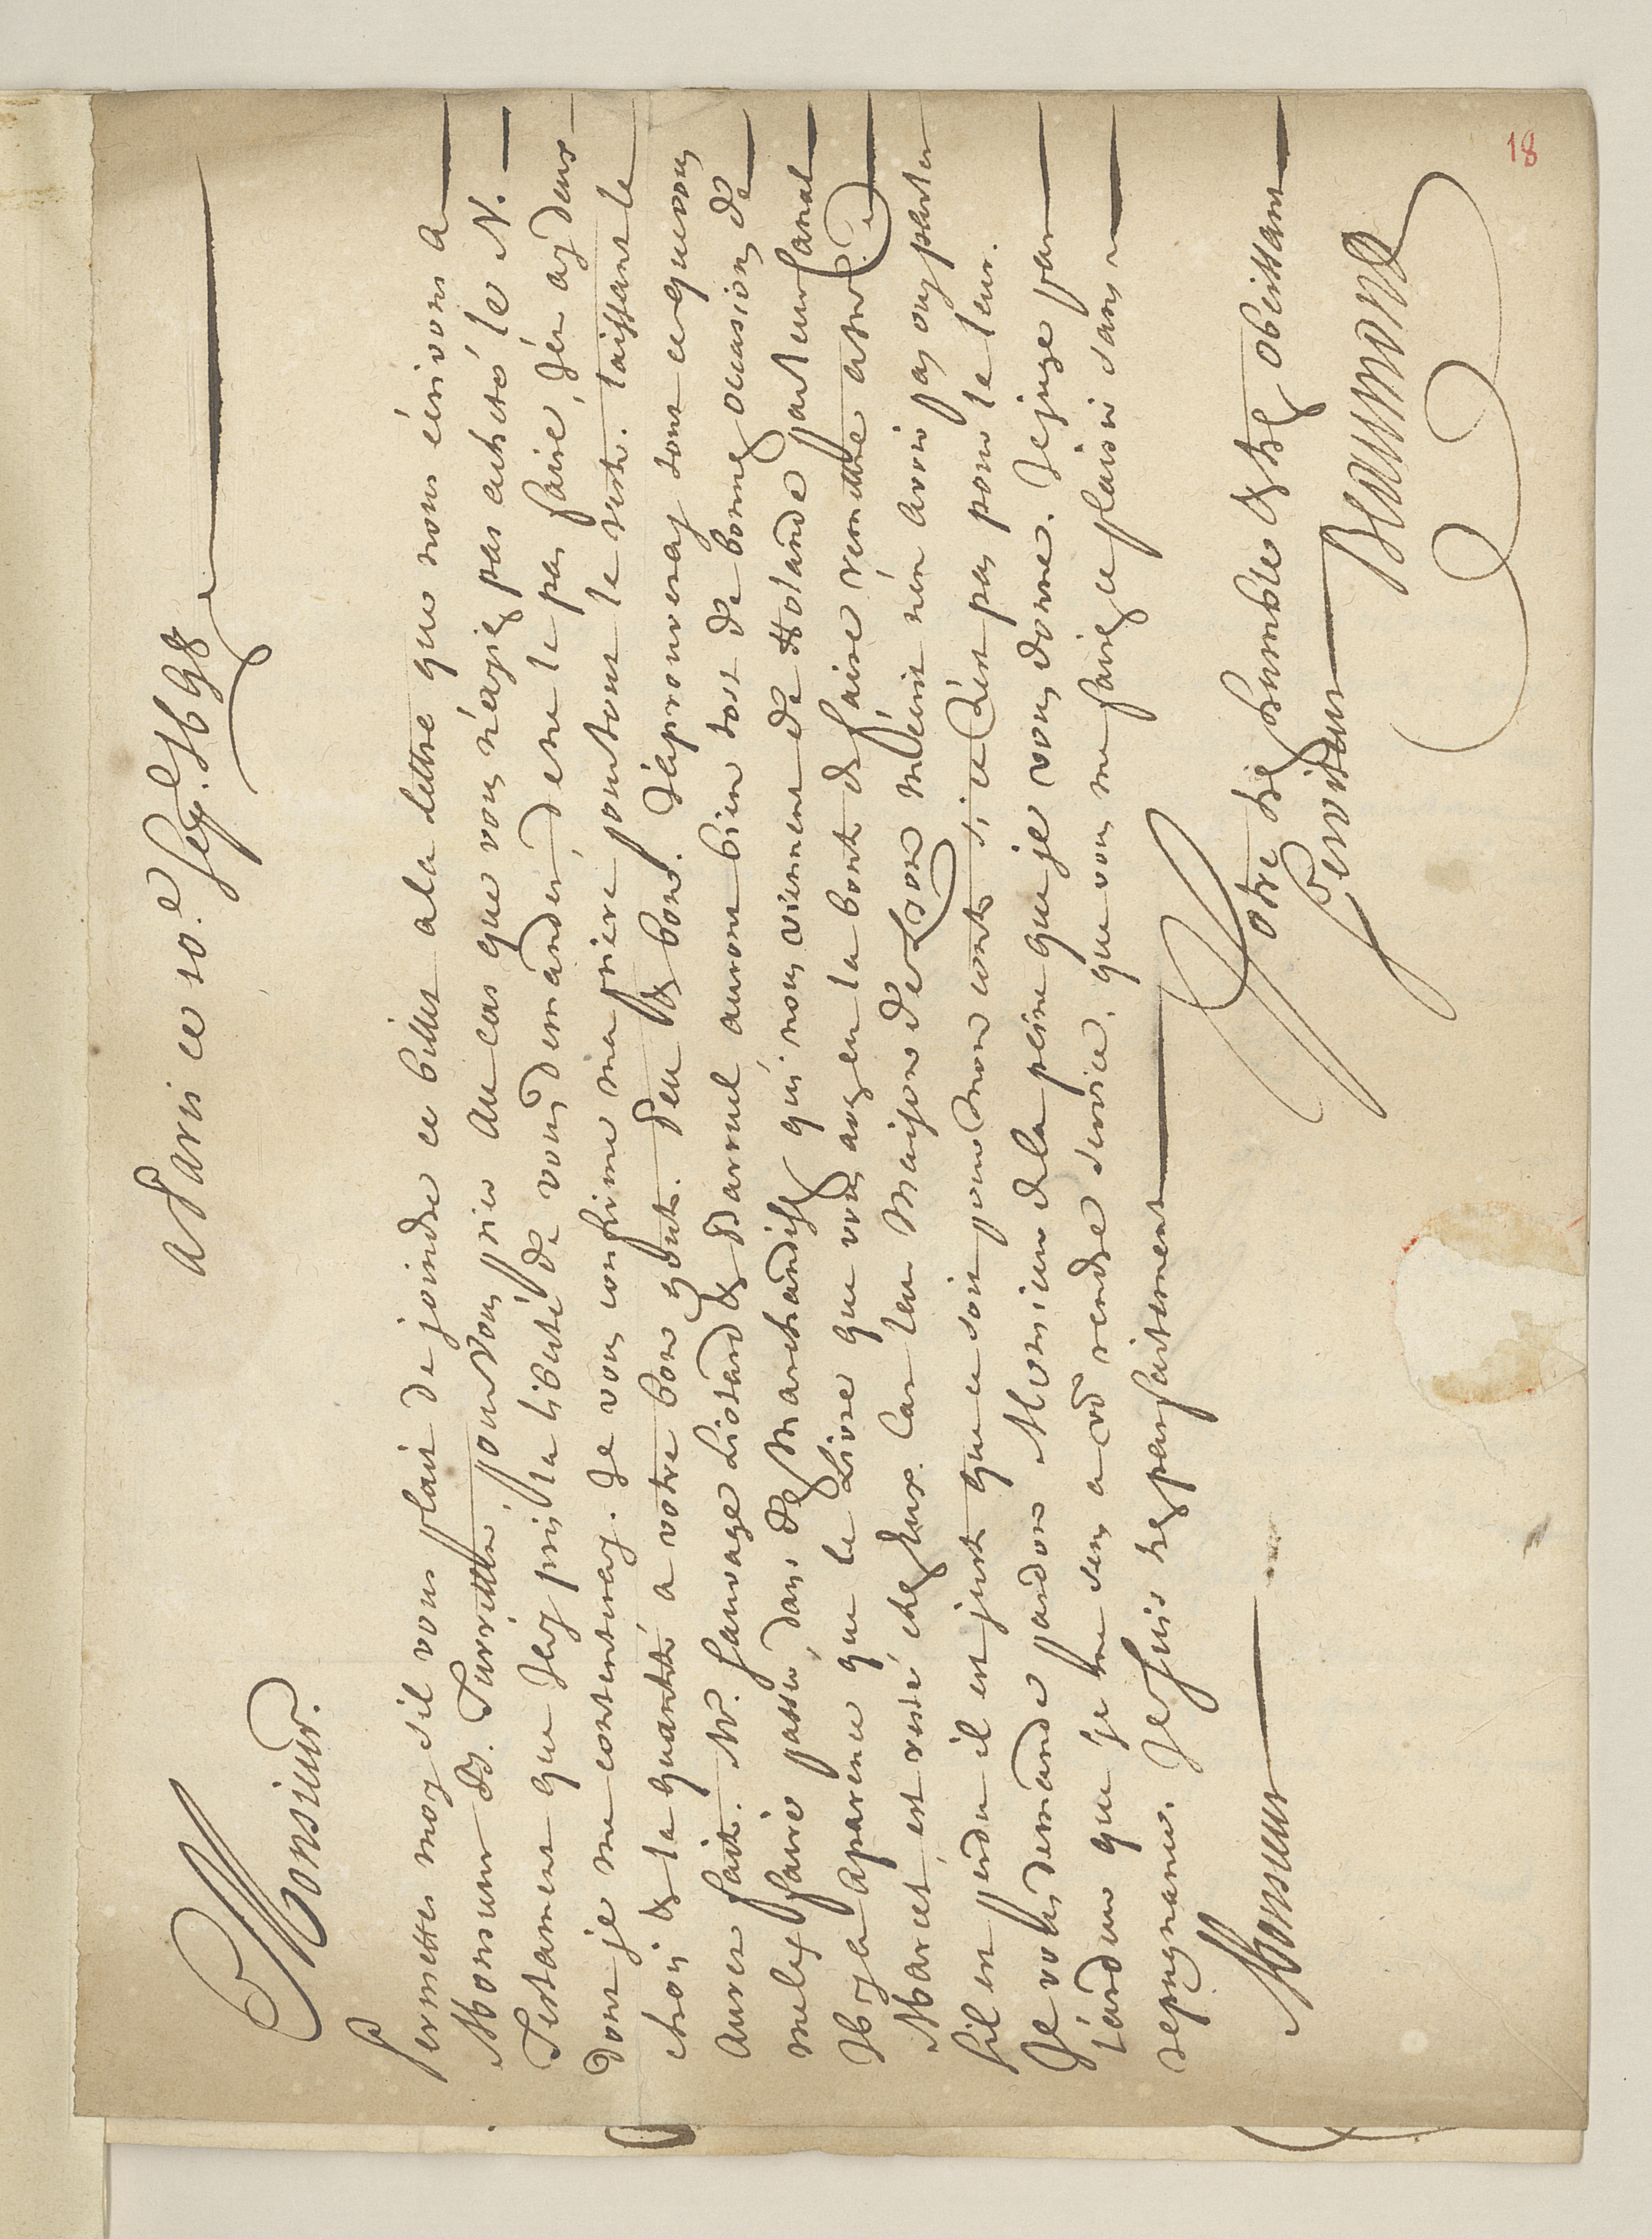 18
A Paris ce 10.e Sep.e 1698
Monsieur.
Permettes moy sil vous plait de joindre ce billet a la lettre que nous écrivons a
Monsieur Dr. Turrettin, pour vous prier au cas que vous n'ayiez pas acheté le N.
Testament que J'ay pris la liberté de vous demander, de ne le pas faire, J'en ay deux
dont je me contenteray. Je vous confirme ma prière pour tout le reste. laissant le
choix & la quantité a votre bon goût. Peu & bon. J'approuveray tout ce que vous
aurez fait. Mr. Sauvage Liotard & Barnuel auront bien tost de bonnes occasions de
me les faire passer, dans des Marchandises qui nous viennent de Holande par leur Canal
Il y a aparence que le Livre que vous avez eu la bonté de faire remettre a Mr.
Marcet, est resté chez Eux. Car leur Maison de Lyon m'écrit n'en avoir pas ouy parler
sil est perdu il est juste que ce soit pour mon conte si ce n'est pas pour le leur.
Je vous demande pardon Monsieur de la peine que je vous donne. Je juge par
l'ardeur que je me sens a vō rendre service, que vous me faires ce plaisir sans
repugnance. Je suis tres parfaitement
Monsieur
Votre tres humble & tres obeissant
Serviteur Beaumont